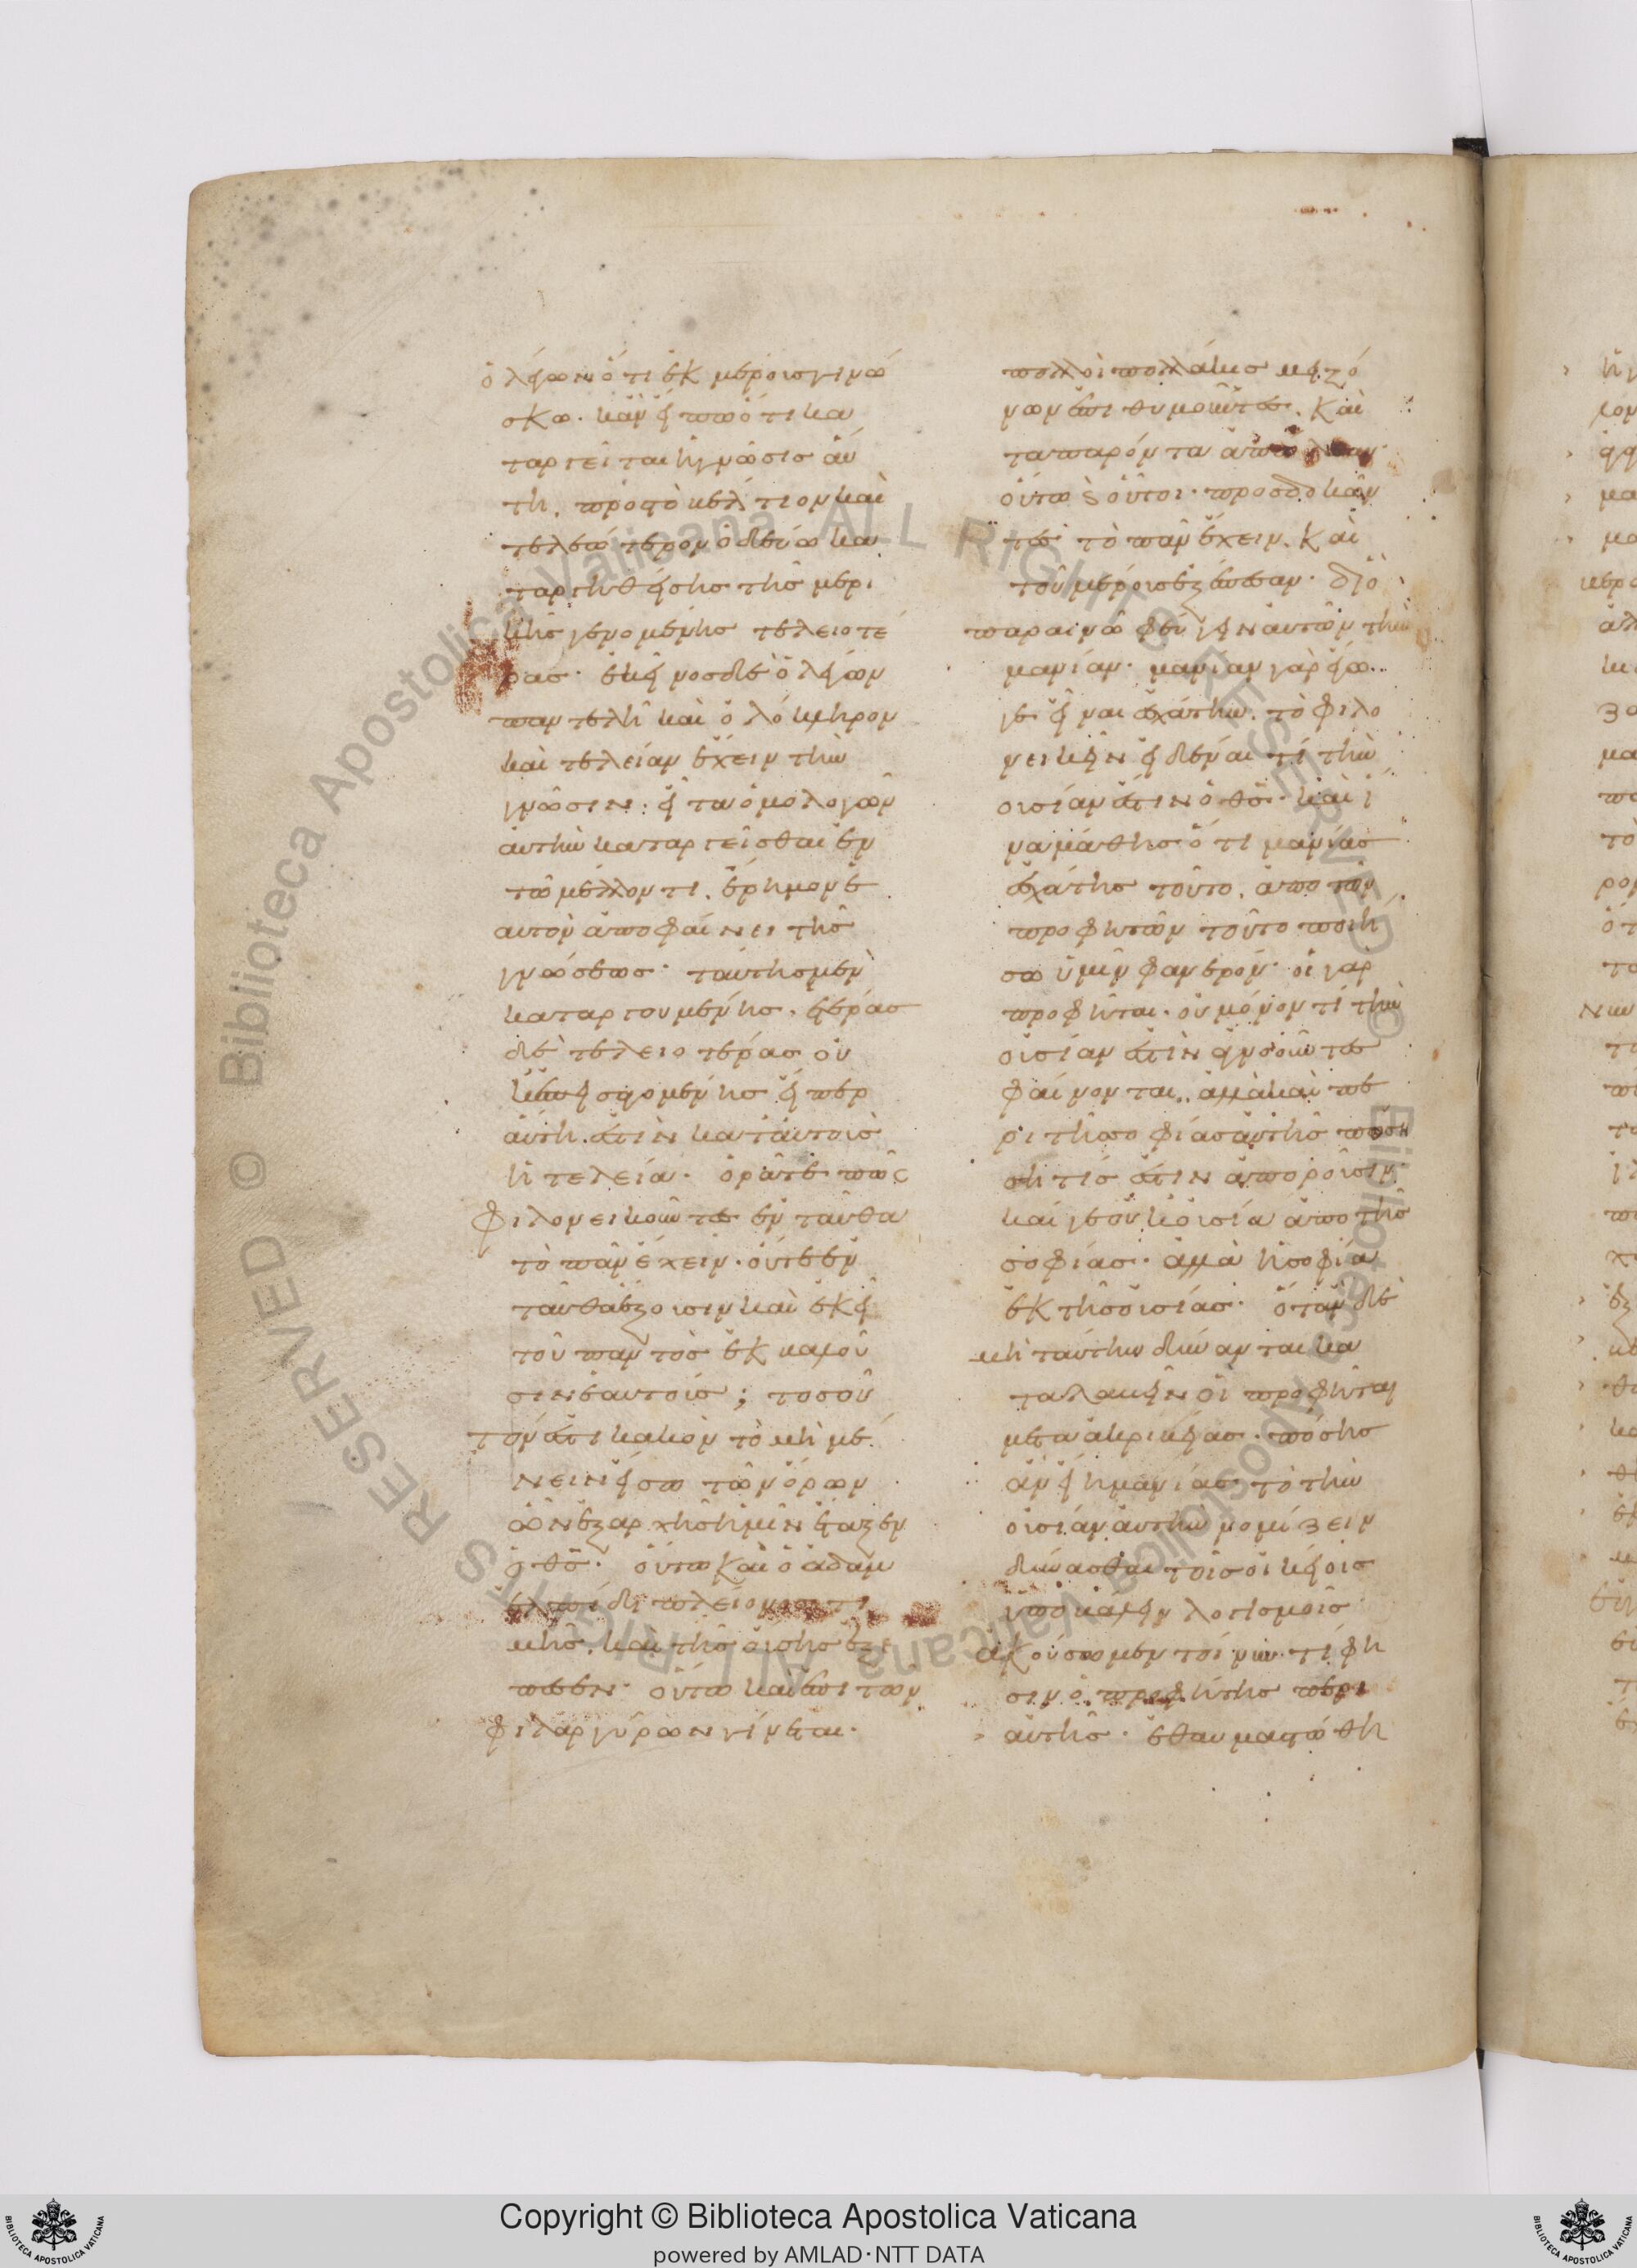 ὁ λέγων ὅτι ἐκ μέρους γινώ
σκω. κἂν εἴπω ὅτι κα
ταργεῖται ἡ γνῶσις αὕ
τη. πρὸς τὸ βέλτιον καὶ
τελεώτερον ὁδεύω κα
ταργηθείσης τῆς μερι
κῆς γενομένης τελειοτέ
ρας. ἐκεῖνος δὲ ὁ λέγων
παντελῆ καὶ ὁλόκληρον
καὶ τελείαν ἔχειν τὴν
γνῶσιν. εἶτα ὁμολογῶν
αὐτὴν καταργεῖσθαι ἐν
τῶ μέλλοντι. ἔρημον ἑ
αυτὸν ἀποφαίνει τῆς
γνώσεως. ταύτης μὲν
καταργουμένης. ἑτέρας
δὲ τελειοτέρας οὐ
κ ἐπεισαγομένης εἴπερ
αὕτη ἐστὶν κατ' αὐτοὺς
ἡ τελεία. ὁρᾶτε πῶς
φιλονεικοῦντες ἐνταῦθα
τὸ πᾶν ἔχειν. οὔτε ἐν
ταῦθα ἕξουσιν καὶ ἐκεῖ
τοῦ παντὸς ἐκβάλλου
σιν ἑαυτούς; τοσοῦ
τόν ἐστι κακὸν τὸ μὴ μέ
νειν εἴσω τῶν ὅρων
ὧν ἐξ αρχῆς ἡμῖν ἔταξεν
ὁ θς. οὕτω καὶ ὁ ἀδὰμ
ἐλπίδι πλείονος τι
μῆς. καὶ τῆς οὔσης ἐξέ
πεσεν. οὕτω καὶ ἐπὶ τῶν
φιλαργύρων γίνεται.
πολλοὶ πολλάκις μειζό
νων ἐπιθυμοῦντες. καὶ
τα παρόντα ἀπώλεσαν.
οὕτω καὶ οὗτοι. προσδοκῶν
τες τὸ πᾶν ἔχειν. καὶ
τοῦ μέρους ἐξέπεσαν. διὸ
παραινῶ φεύγειν αὐτῶν τὴν
μανίαν. μανία γὰρ ἐσχά
τη εἶναι ἐσχάτην. τὸ φιλο
νεικεῖν εἰδέναι τί τὴν
οὐσίαν ἐστὶν ὁ θς. καὶ ἵ
να μάθης ὅτι μανίας
ἐσχάτης τοῦτο. ἀπο τῶν
προφητῶν τοῦτο ποιή
σω ὑμῖν φανερόν. οἱ γαρ
προφῆται. οὐ μόνον τί τὴν
οὐσίαν ἐστὶν ἀγνοοῦντες
φαίνονται. ἀλλὰ καὶ πε
ρὶ τῆς σοφίας αὐτῆς πόση
τίς ἐστιν ἀποροῦσιν.
καί γε οὐχ ἡ οὐσία ἀπο τῆς
σοφίας. ἀλλὰ ἡ σοφία
ἐκ τῆς οὐσίας. ὅταν δὲ
μὴ ταύτην δύνανται κα
ταλαβεῖν οἱ προφῆται
μετα ἀκριβείας. πόσης
ἂν εἴη μανίας τὸ τὴν
οὐσίαν αὐτὴν νομίζειν
δύνασθαι τοῖς οἰκείοις
ὑποβάλλειν λογισμοῖς.
ἀκούσωμεν τοίνυν τί φη
σιν ὁ προφήτης περὶ
αὐτῆς. ἐθαυμαστώθη